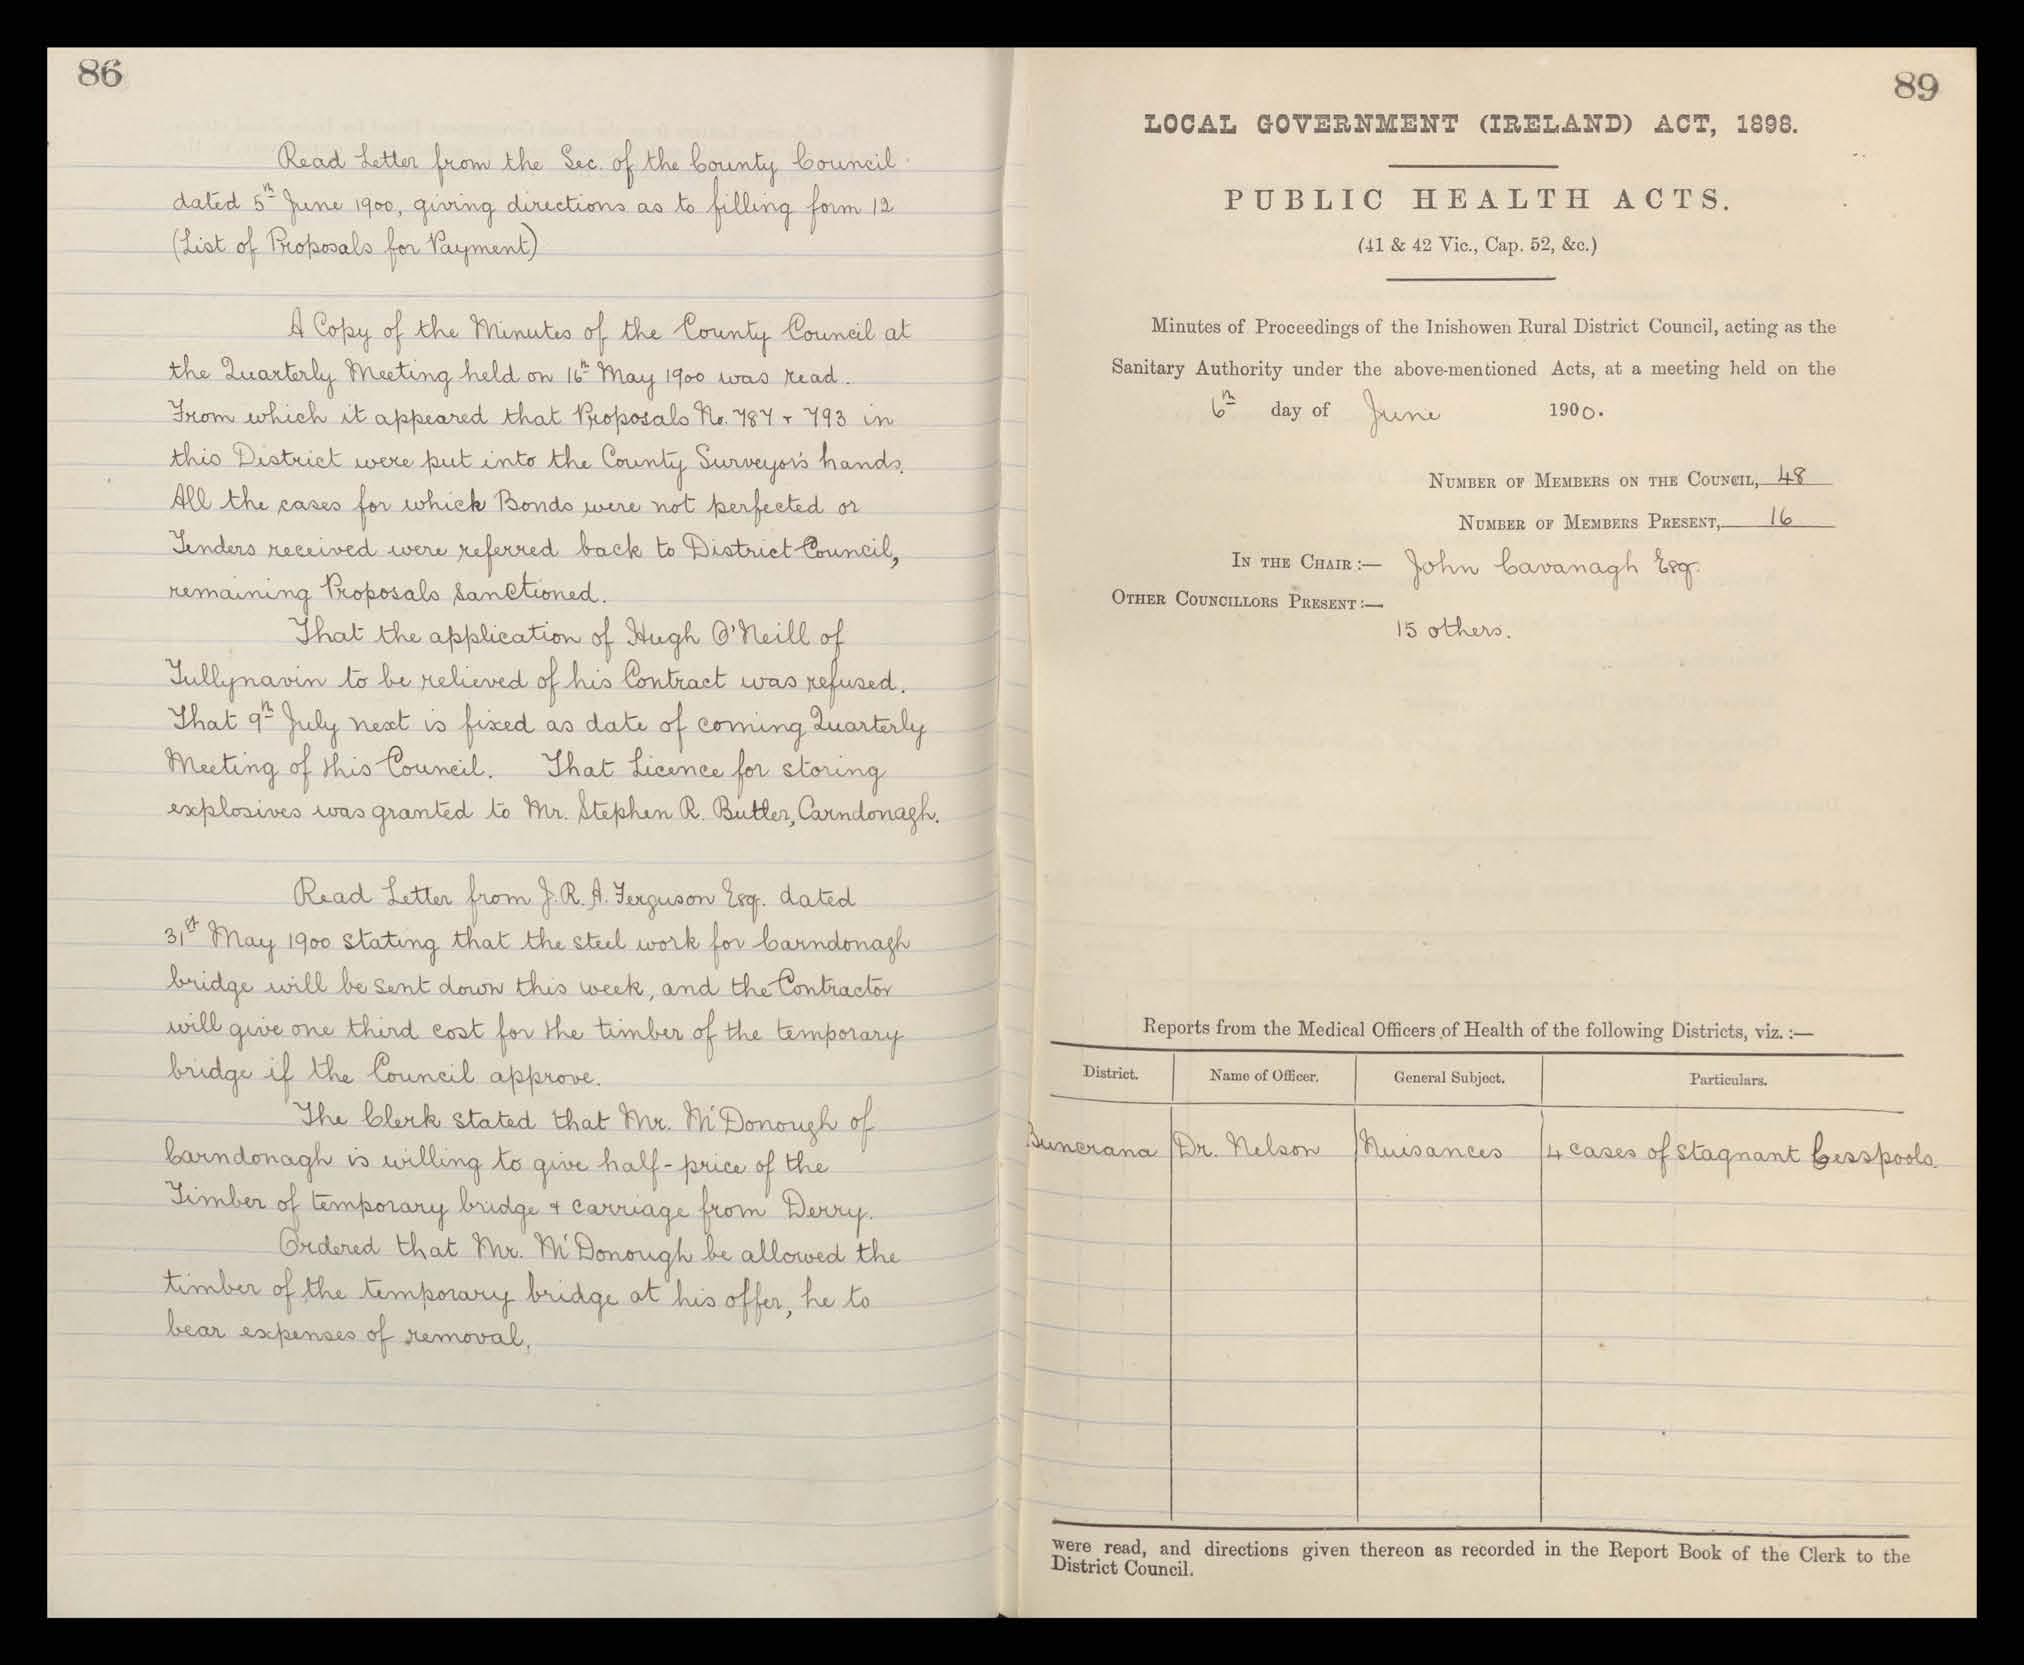 86
Read Letter from the Sec. of the County Council
dated 5th June 1900, giving directions as to filling form 12
(List of Proposals for Payment)
A Copy of the Minutes of the County Council at
the Quarterly Meeting held on 16th May 1900 was read.
From which it appeared that Proposals No. 787 + 793 in
this District were put into the County Surveyor's hands.
All the cases for which Bonds were not perfected or
Tenders received were referred back to District Council,
remaining Proposals sanctioned.
That the application of Hugh O'Neill of
Tullynavin to be relieved of his Contract was refused.
That 9th July next is fixed as date of coming Quarterly
Meeting of this Council. That Licence for storing
explosives was granted to Mr. Stephen R. Butler, Carndonagh.
Read Letter from J. R. A. Ferguson Esq. dated
31st May 1900 stating that the steel work for Carndonagh
bridge will be sent down this week, and the Contractor
will give one third cost for the timber of the temporary
bridge if the Council approve.
The Clerk stated that Mr. McDonough of
Carndonagh is willing to give half-price of the
Timber of temporary bridge + carriage from Derry.
Ordered that Mr. McDonough be allowed the
timber of the temporary bridge at his offer, he to
bear expenses of removal.
89
LOCAL GOVERNMENT (IRELAND) ACT, 1898.
PUBLIC HEALTH ACTS.
(41 & 42 Vic., Cap. 52, &c.)
Minutes of Proceedings of the Inishowen Rural District Council, acting as the
Sanitary Authority under the above-mentioned Acts, at a meeting held on the
6th day of June 1900.
NUMBER OF MEMBERS ON THE COUNCIL, 48
NUMBER OF MEMBERS PRESENT, 16
IN THE CHAIR:— John Cavanagh Esq.
OTHER COUNCILLORS PRESENT:—
15 others.
Reports from the Medical Officers of Health of the following Districts, viz.:—
District. Name of Officer. General Subject. Particulars.
Buncrana Dr. Nelson Nuisances 4 cases of stagnant Cesspools.
were read, and directions given thereon as recorded in the Report Book of the Clerk to the
District Council.